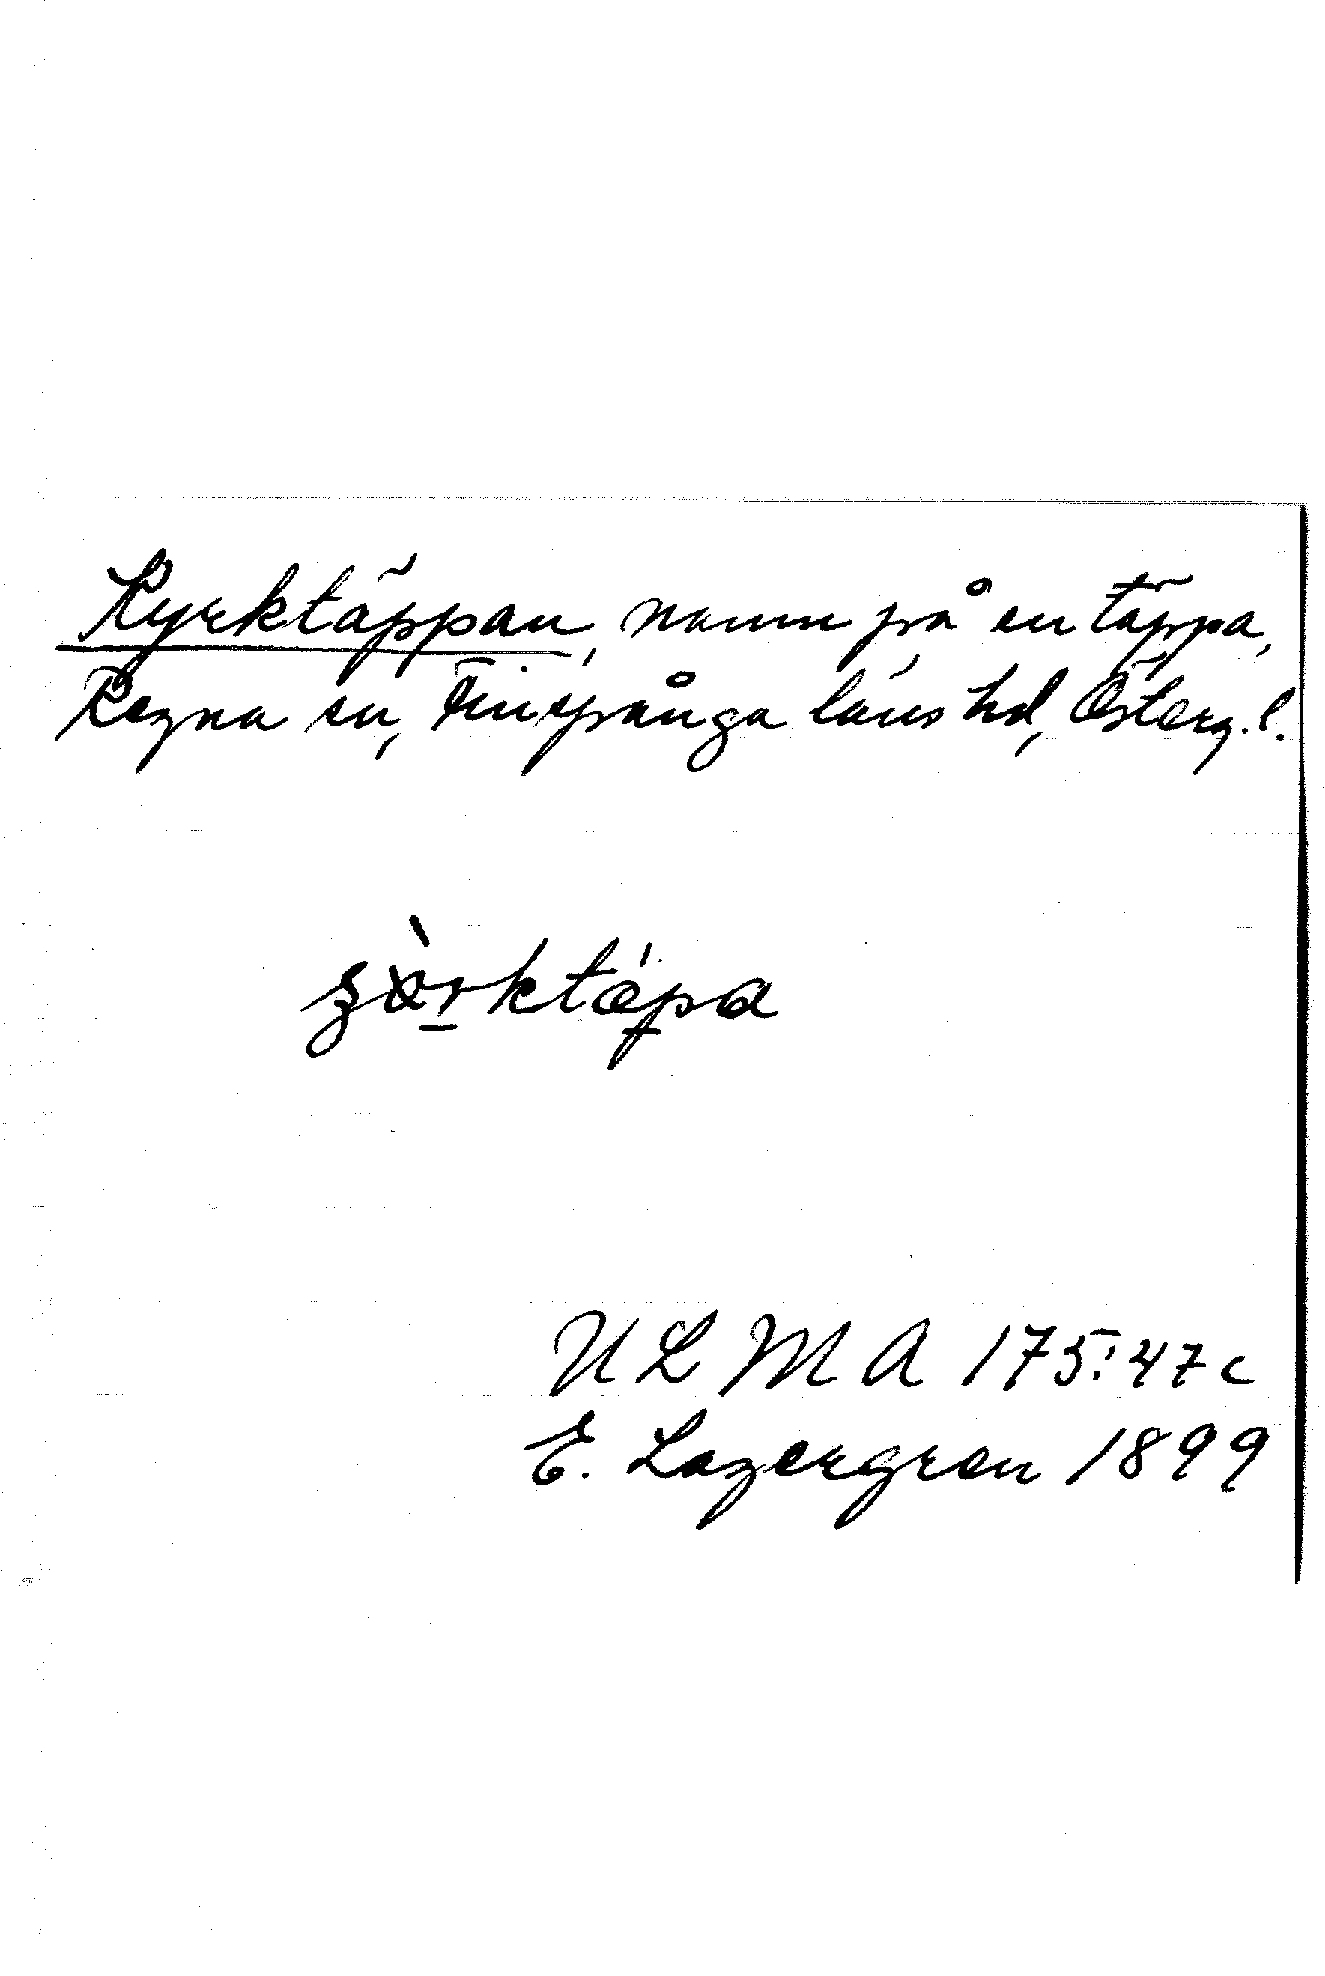 Kyrktäppan, namn på en täppa,
Regna sn, Finspånga läns hd, Österg. l.
ULMA 175:47c
E. Lagergren 1899